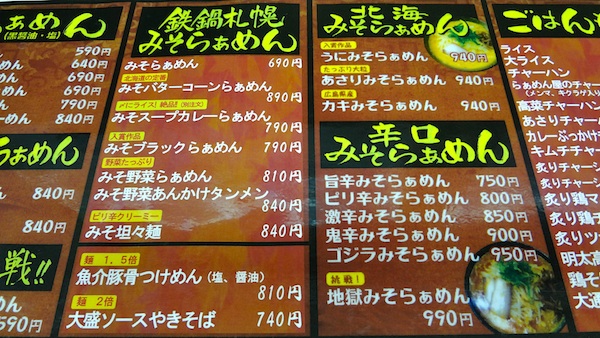 らぁめん
(黒醤油・塩)
590円
640円
640円
690円
790円
840円
らぁめん
840円
840円
戦!!
590円
鉄鍋札幌
みそらぁめん
みそらぁめん 690円
北海道の定番
みそバターコーンらぁめん
890円
〆にライス!絶品!(別注文)
みそスープカレーらぁめん
790円
入賞作品
みそブラックらぁめん 790円
野菜たっぷり
みそ野菜らぁめん 810円
みそ野菜あんかけタンメン
840円
ピリ辛クリーミー
みそ坦々麺 840円
麺 1.5倍
魚介豚骨つけめん(塩、醤油)
810円
麺 2倍
大盛ソースやきそば 740円
北海
みそらぁめん
入賞作品
うにみそらぁめん 940円
たっぷり大粒
あさりみそらぁめん 940円
広島県産
カキみそらぁめん 940円
辛口
みそらぁめん
旨辛みそらぁめん 750円
ピリ辛みそらぁめん 800円
激辛みそらぁめん 850円
鬼辛みそらぁめん 900円
ゴジラみそらぁめん 950円
挑戦!
地獄みそらぁめん
990円
ごはん
ライス
大ライス
チャーハン
らぁめん屋のチャー
(メンマ、キクラゲ入り
高菜チャーハン
あさりチャーハ
カレーぶっかけ
キムチチャーハ
炙りチャーシ
炙り鶏マ
炙り鶏
炙りツ
明太高
鶏そ
大通